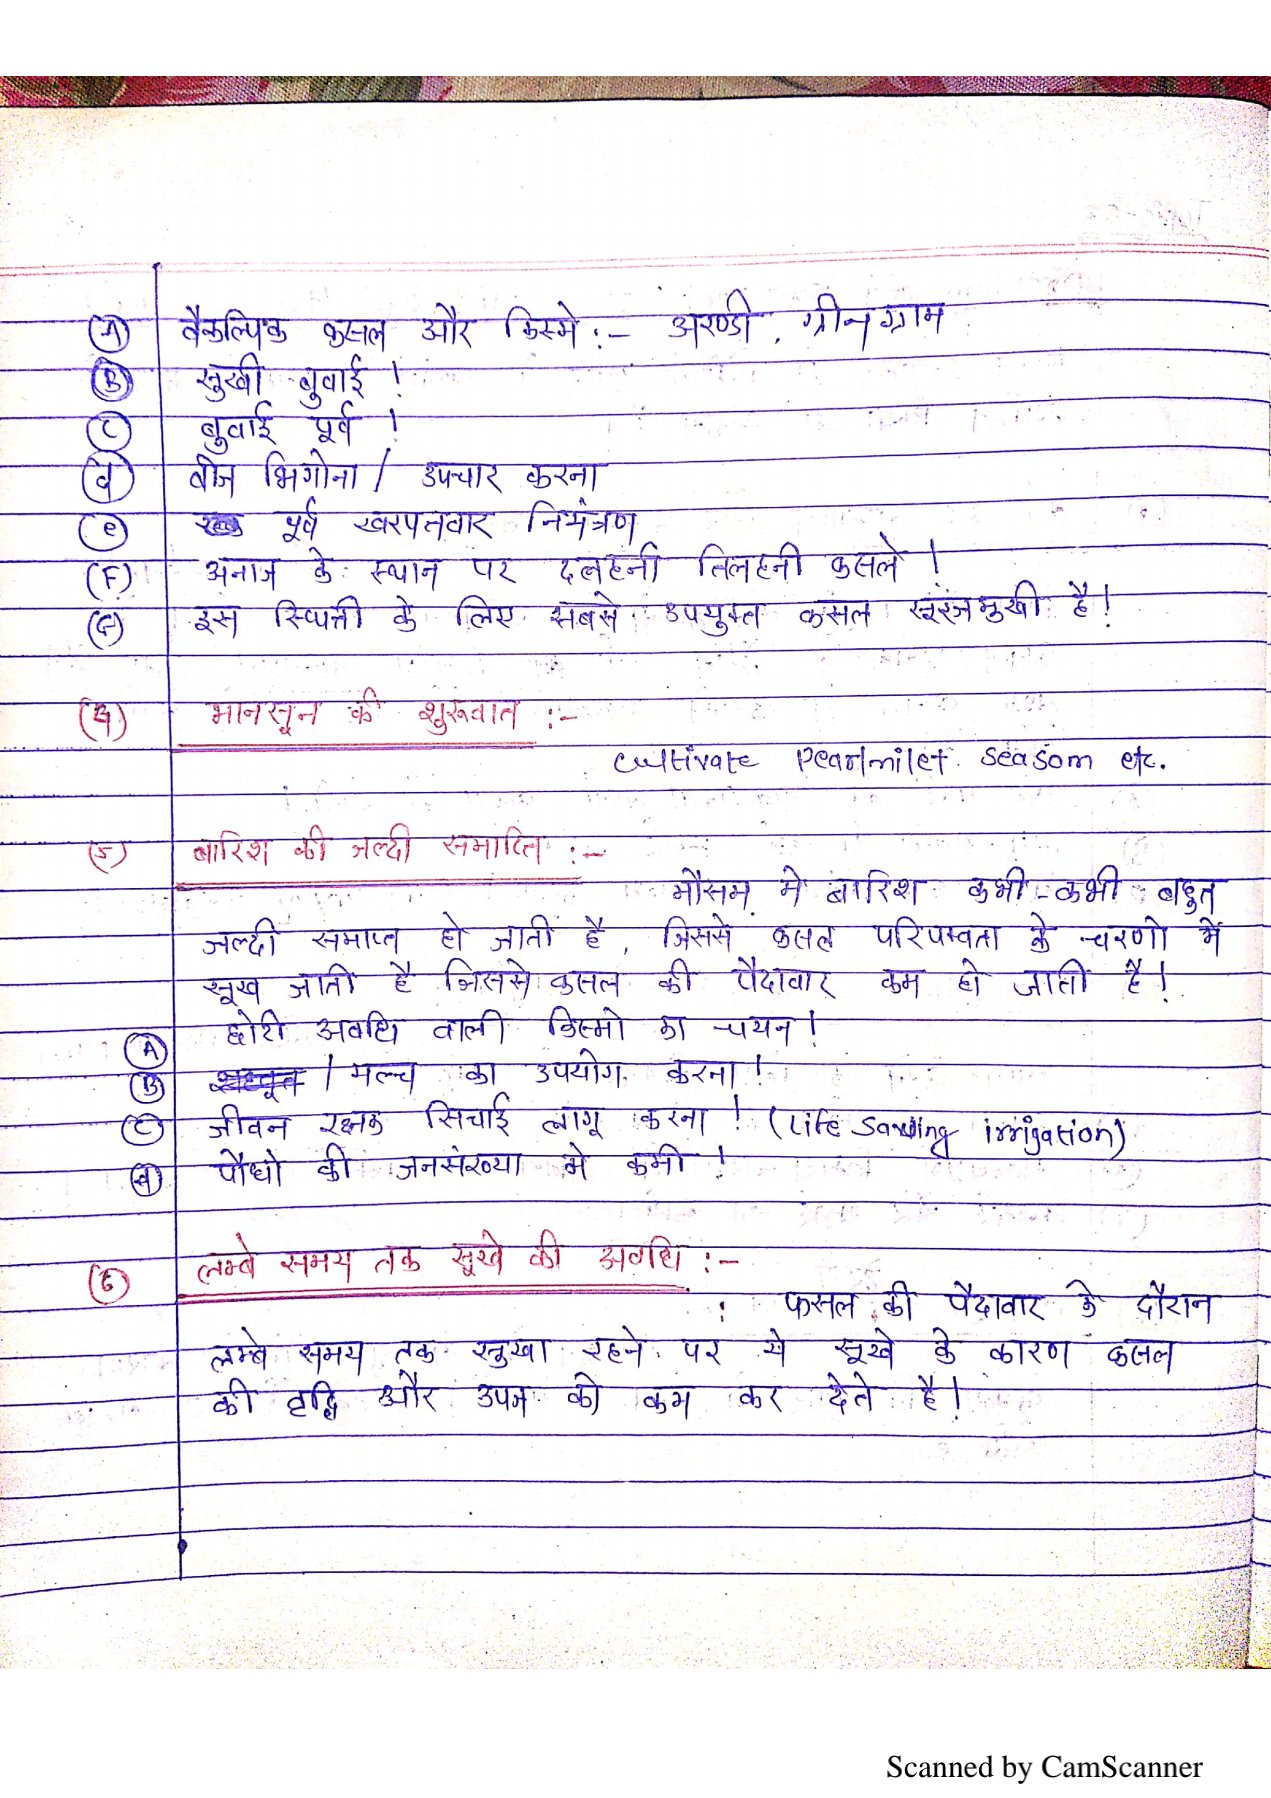 (A) वैकल्पिक फसल और किस्मे :- अरण्डी, ग्रीनग्राम
(B) सुखी बुवाई !
(C) बुवाई पूर्व !
(d) बीज भिगोना / उपचार करना
(e) पूर्व खरपतवार नियंत्रण
(F) अनाज के स्थान पर दलहनी तिलहनी फसले !
(G) इस स्थिती के लिए सबसे उपयुक्त फसल सूरजमुखी है !
(4) मानसून की शुरूवात :-
cultivate Pearlmilet. Seasom etc.
(5) बारिश की जल्दी समाप्ति :-
मौसम मे बारिश कभी-कभी बहुत
जल्दी समाप्त हो जाती है, जिससे फसल परिपक्वता के चरणो में
सूख जाती है जिससे फसल की पैदावार कम हो जाती है !
(A) छोटी अवधि वाली किस्मो का चयन !
(B) / मल्च का उपयोग करना !
(C) जीवन रक्षक सिचाई लागू करना ! (Life Saving irrigation)
(d) पौधो की जनसंख्या मे कमी !
(6) लम्बे समय तक सूखे की अवधि :-
: फसल की पैदावार के दौरान
लम्बे समय तक सूखा रहने पर ये सूखे के कारण फसल
की वृद्धि और उपज को कम कर देते है !
Scanned by CamScanner